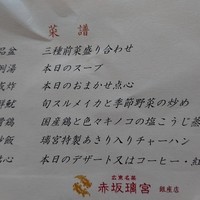 菜譜
品盆 三種前菜盛り合わせ
例湯 本日のスープ
炸 本日のおまかせ点心
鮮魷 旬スルメイカと季節野菜の炒め
鶏 国産鶏と色々キノコの塩こうじ蒸
炒飯 璃宮特製あさり入りチャーハン
心 本日のデザート又はコーヒー・紅
広東名菜
赤坂璃宮 銀座店